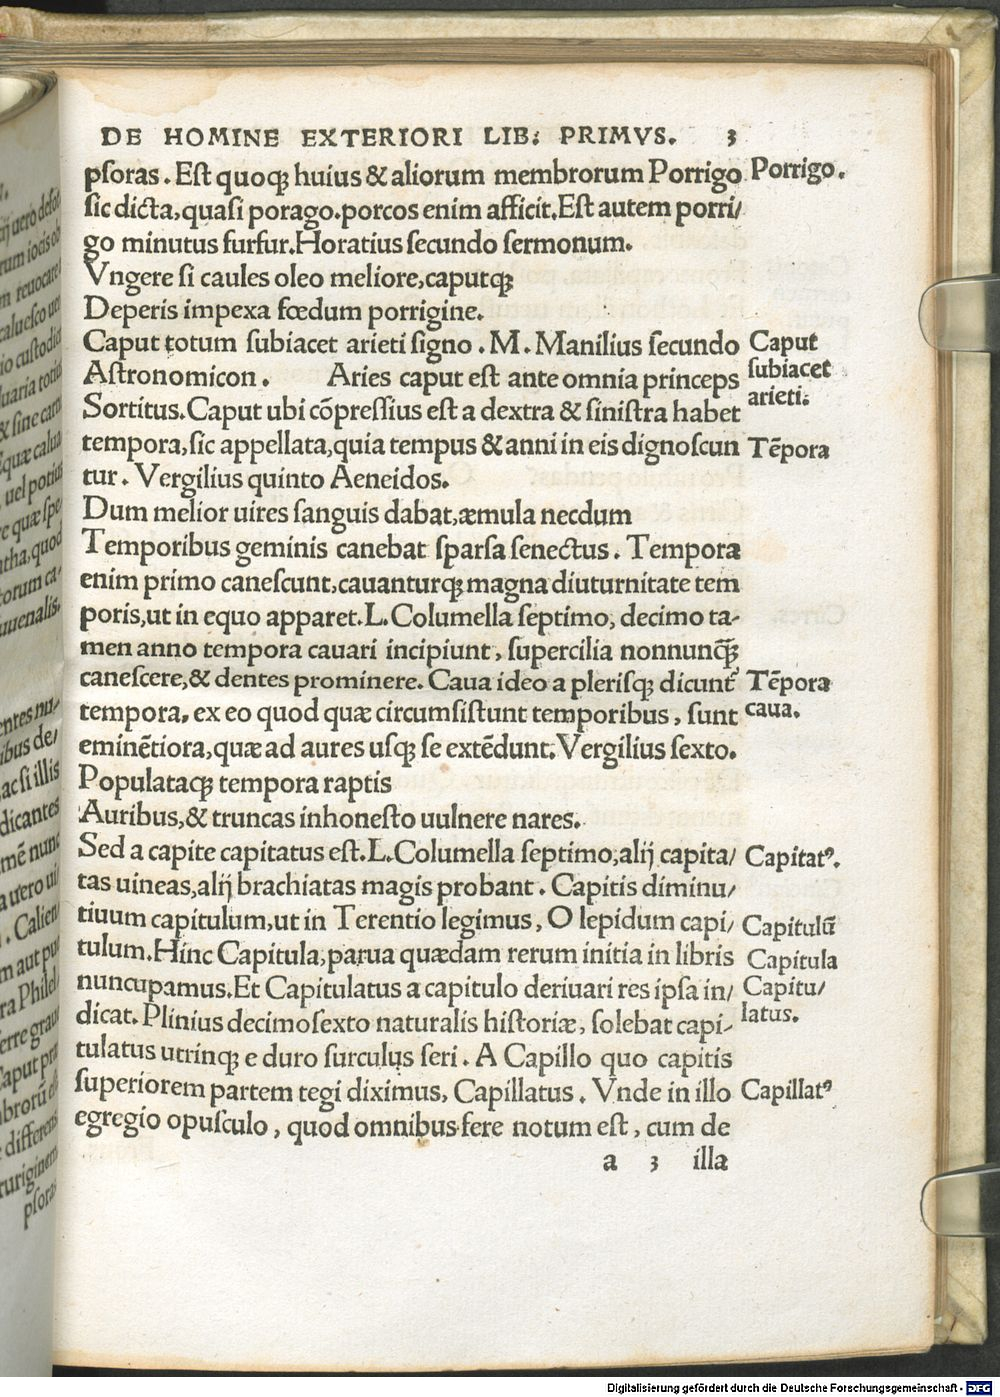 DE HOMINE EXTERIORI LIB: PRIMVS. 3
pſoras. Eſt quoqꝫ huius & aliorum membrorum Porrigo
Porrigo.
ſic dicta, quaſi porago. porcos enim afficit. Eſt autem porri/
go minutus furfur. Horatius ſecundo ſermonum.
Vngere ſi caules oleo meliore, caputqꝫ
Deperis impexa fœdum porrigine.
Caput totum ſubiacet arieti ſigno. M. Manilius ſecundo
Caput
Aſtronomicon. Aries caput eſt ante omnia princeps
ſubiacet
Sortitus. Caput ubi cõpreſſius eſt a dextra & ſiniſtra habet
arieti:
tempora, ſic appellata, quia tempus & anni in eis dignoſcun
Tẽpora
tur. Vergilius quinto Aeneidos.
Dum melior uires ſanguis dabat, æmula necdum
Temporibus geminis canebat ſparſa ſenectus. Tempora
enim primo caneſcunt, cauanturqꝫ magna diuturnitate tem
poris, ut in equo apparet. L. Columella ſeptimo, decimo ta-
men anno tempora cauari incipiunt, ſupercilia nonnunq̃ꝫ
caneſcere, & dentes prominere. Caua ideo a pleriſqꝫ dicunt᷑
Tẽpora
tempora, ex eo quod quæ circumſiſtunt temporibus, ſunt
caua.
eminẽtiora, quæ ad aures uſqꝫ ſe extẽdunt. Vergilius ſexto.
Populataqꝫ tempora raptis
Auribus, & truncas inhoneſto uulnere nares.
Sed a capite capitatus eſt. L. Columella ſeptimo, alij capita/
Capitatꝰ.
tas uineas, alij brachiatas magis probant. Capitis diminu/
tiuum capitulum, ut in Terentio legimus, O lepidum capi/
Capitulũ
tulum. Hinc Capitula, parua quædam rerum initia in libris
Capitula
nuncupamus. Et Capitulatus a capitulo deriuari res ipſa in/
Capitu/
dicat. Plinius decimoſexto naturalis hiſtoriæ, ſolebat capi-
latus.
tulatus utrinqꝫ e duro ſurculus ſeri. A Capillo quo capitis
ſuperiorem partem tegi diximus, Capillatus. Vnde in illo
Capillatꝰ
egregio opuſculo, quod omnibus fere notum eſt, cum de
a 3 illa
Digitalisierung gefördert durch die Deutsche Forschungsgemeinschaft - DFG